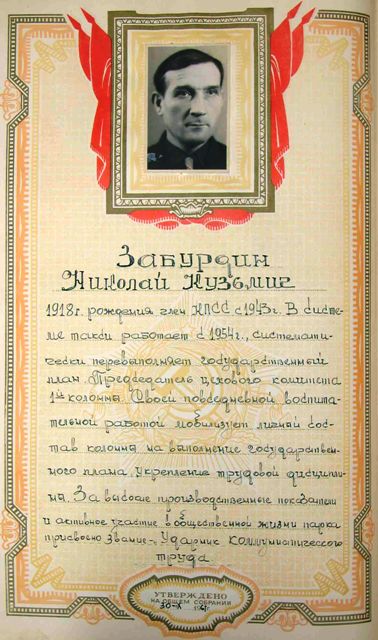 Забурдин
Николай Кузьмич
1918 г. рождения член КПСС с 1943 г. В систе-
ме такси работает с 1954 г., системати-
чески перевыполняет государственный
план. Председатель цехового комитета
1ой колонны. Своей повседневной воспита-
тельной работой мобилизует личный сос-
тав колонны на выполнение государствен-
ного плана. Укрепление трудовой дисципли-
ны. За высокие производственные показатели
и активное участие в общественной жизни парка
присвоено звание - Ударник Коммунистического
труда.
УТВЕРЖДЕНО
НА ОБЩЕМ СОБРАНИИ
30-X